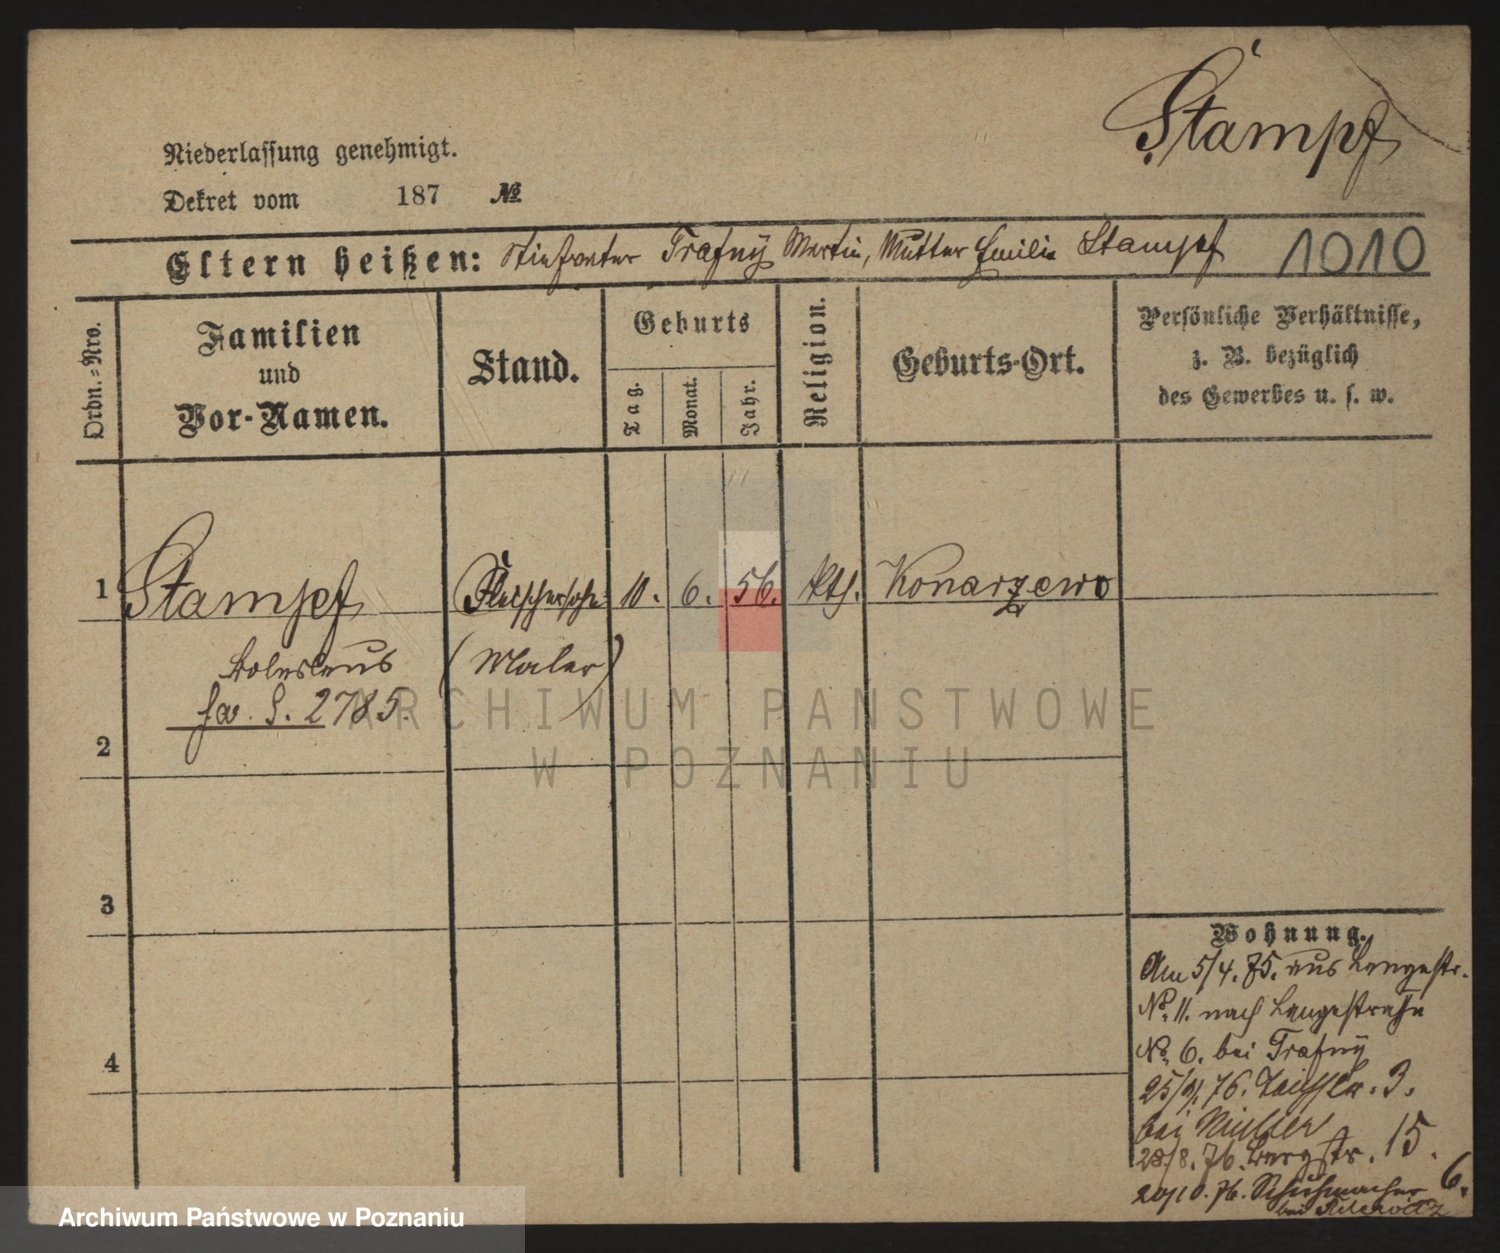 Stampf
Niederlassung genehmigt.
Dekret vom 187 №
Eltern heißen: Stiefvater Trafny Martin, Mutter Emilie Stampf 1010
Ordn.-Nro.
Familien
und
Vor-Namen.
Stand.
Geburts
Tag.
Monat.
Jahr.
Religion.
Geburts-Ort.
Persönliche Verhältnisse,
z. B. bezüglich
des Gewerbes u. s. w.
1 Stampf Fleischersohn 11. 6. 56. kth. Konarzewo
Boleslaus (Maler)
2785.
2
3
4
Wohnung.
Am 5/4. 75. aus Langestr.
No. 11. nach Langestraße
No. 6. bei Trafny
76. 3.
bei
28/8. 76. Bergstr. 15.
20/10. 76. Schuhmacher 6.
bei
ARCHIWUM PAŃSTWOWE
W POZNANIU
Archiwum Państwowe w Poznaniu